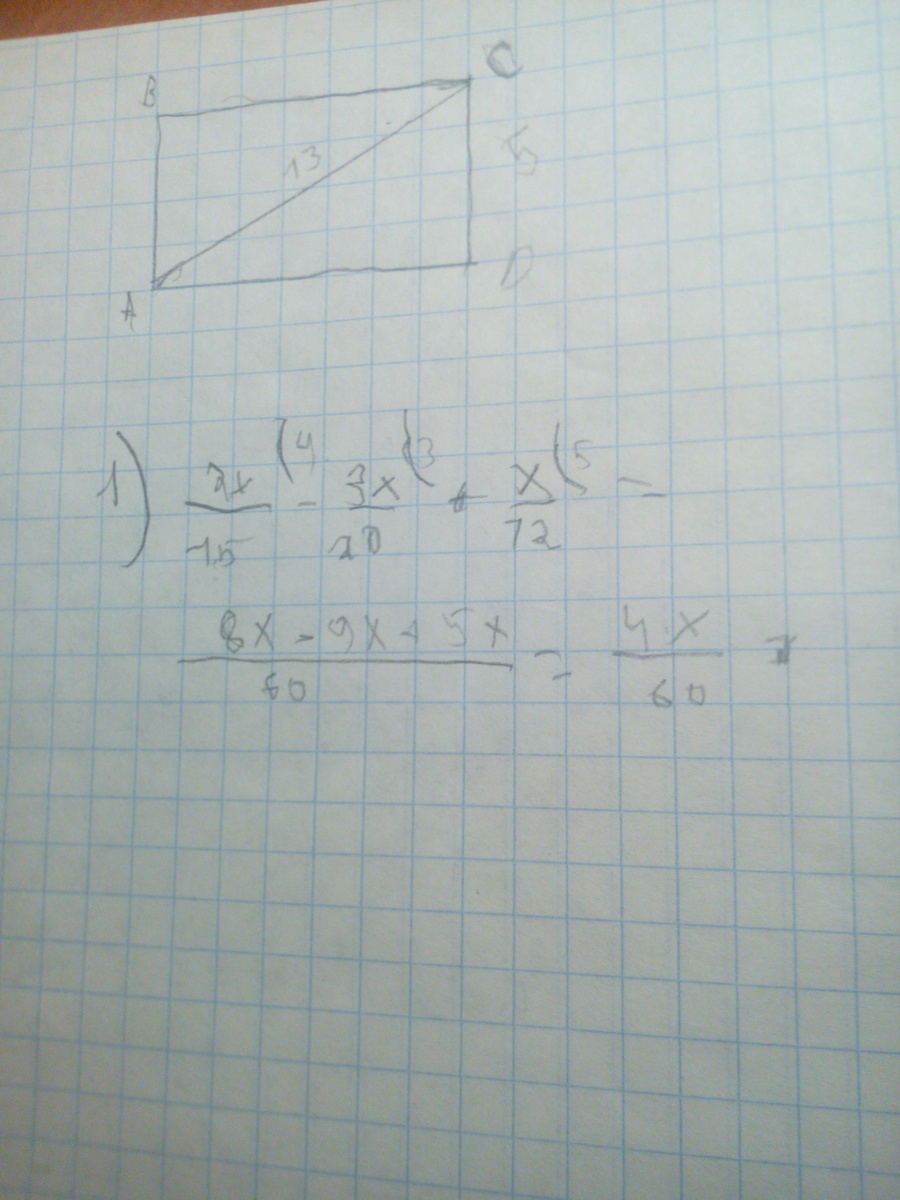 B C
13 5
A D
1) 2x/15 (4 - 3x/20 (3 + x/12 (5 =
8x - 9x + 5x / 60 = 4x / 60 =